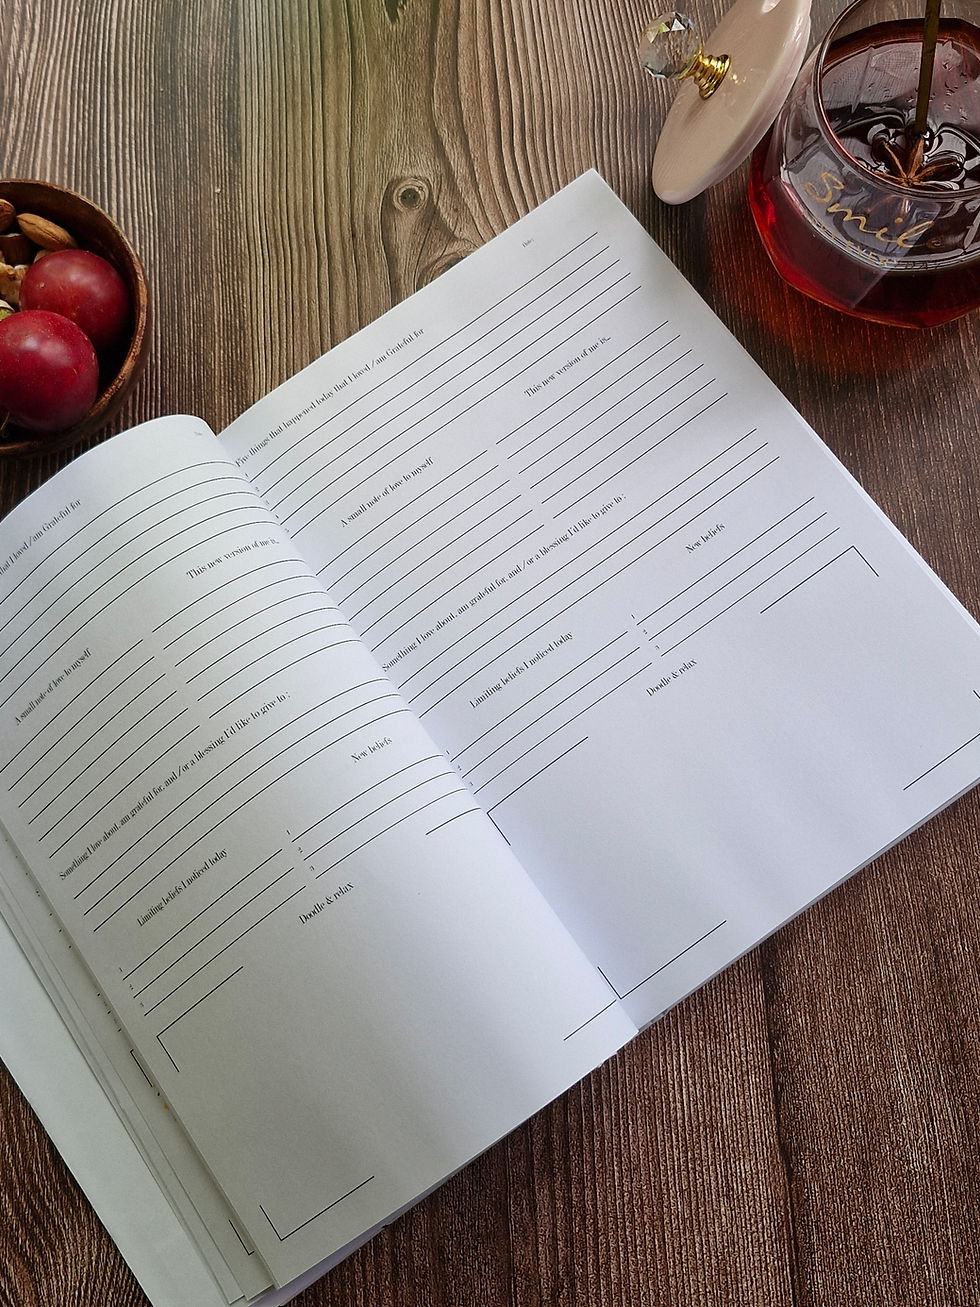 that I loved / am Grateful for
This new version of me is...
A small note of love to myself
Something I love about, am grateful for, and / or a blessing I'd like to give to :
New beliefs
1
2
3
Limiting beliefs I noticed today
1
2
3
Doodle & relax
Date:
Five things that happened today that I loved / am Grateful for
This new version of me is...
A small note of love to myself
Something I love about, am grateful for, and / or a blessing I'd like to give to :
New beliefs
1
2
3
Limiting beliefs I noticed today
1
2
3
Doodle & relax
Smile